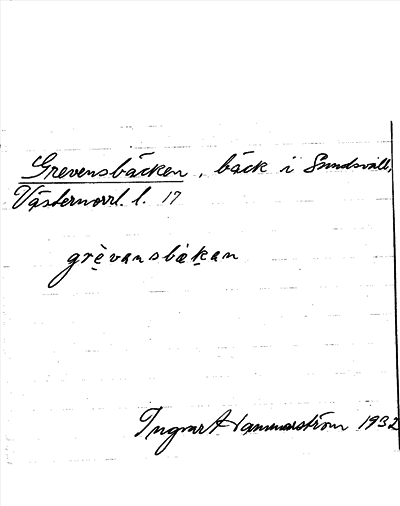 Grevensbäcken, bäck i Sundsvall,
Västernorrl. l. 17
grèvansbäkan
Ingmar Hammarström 1932